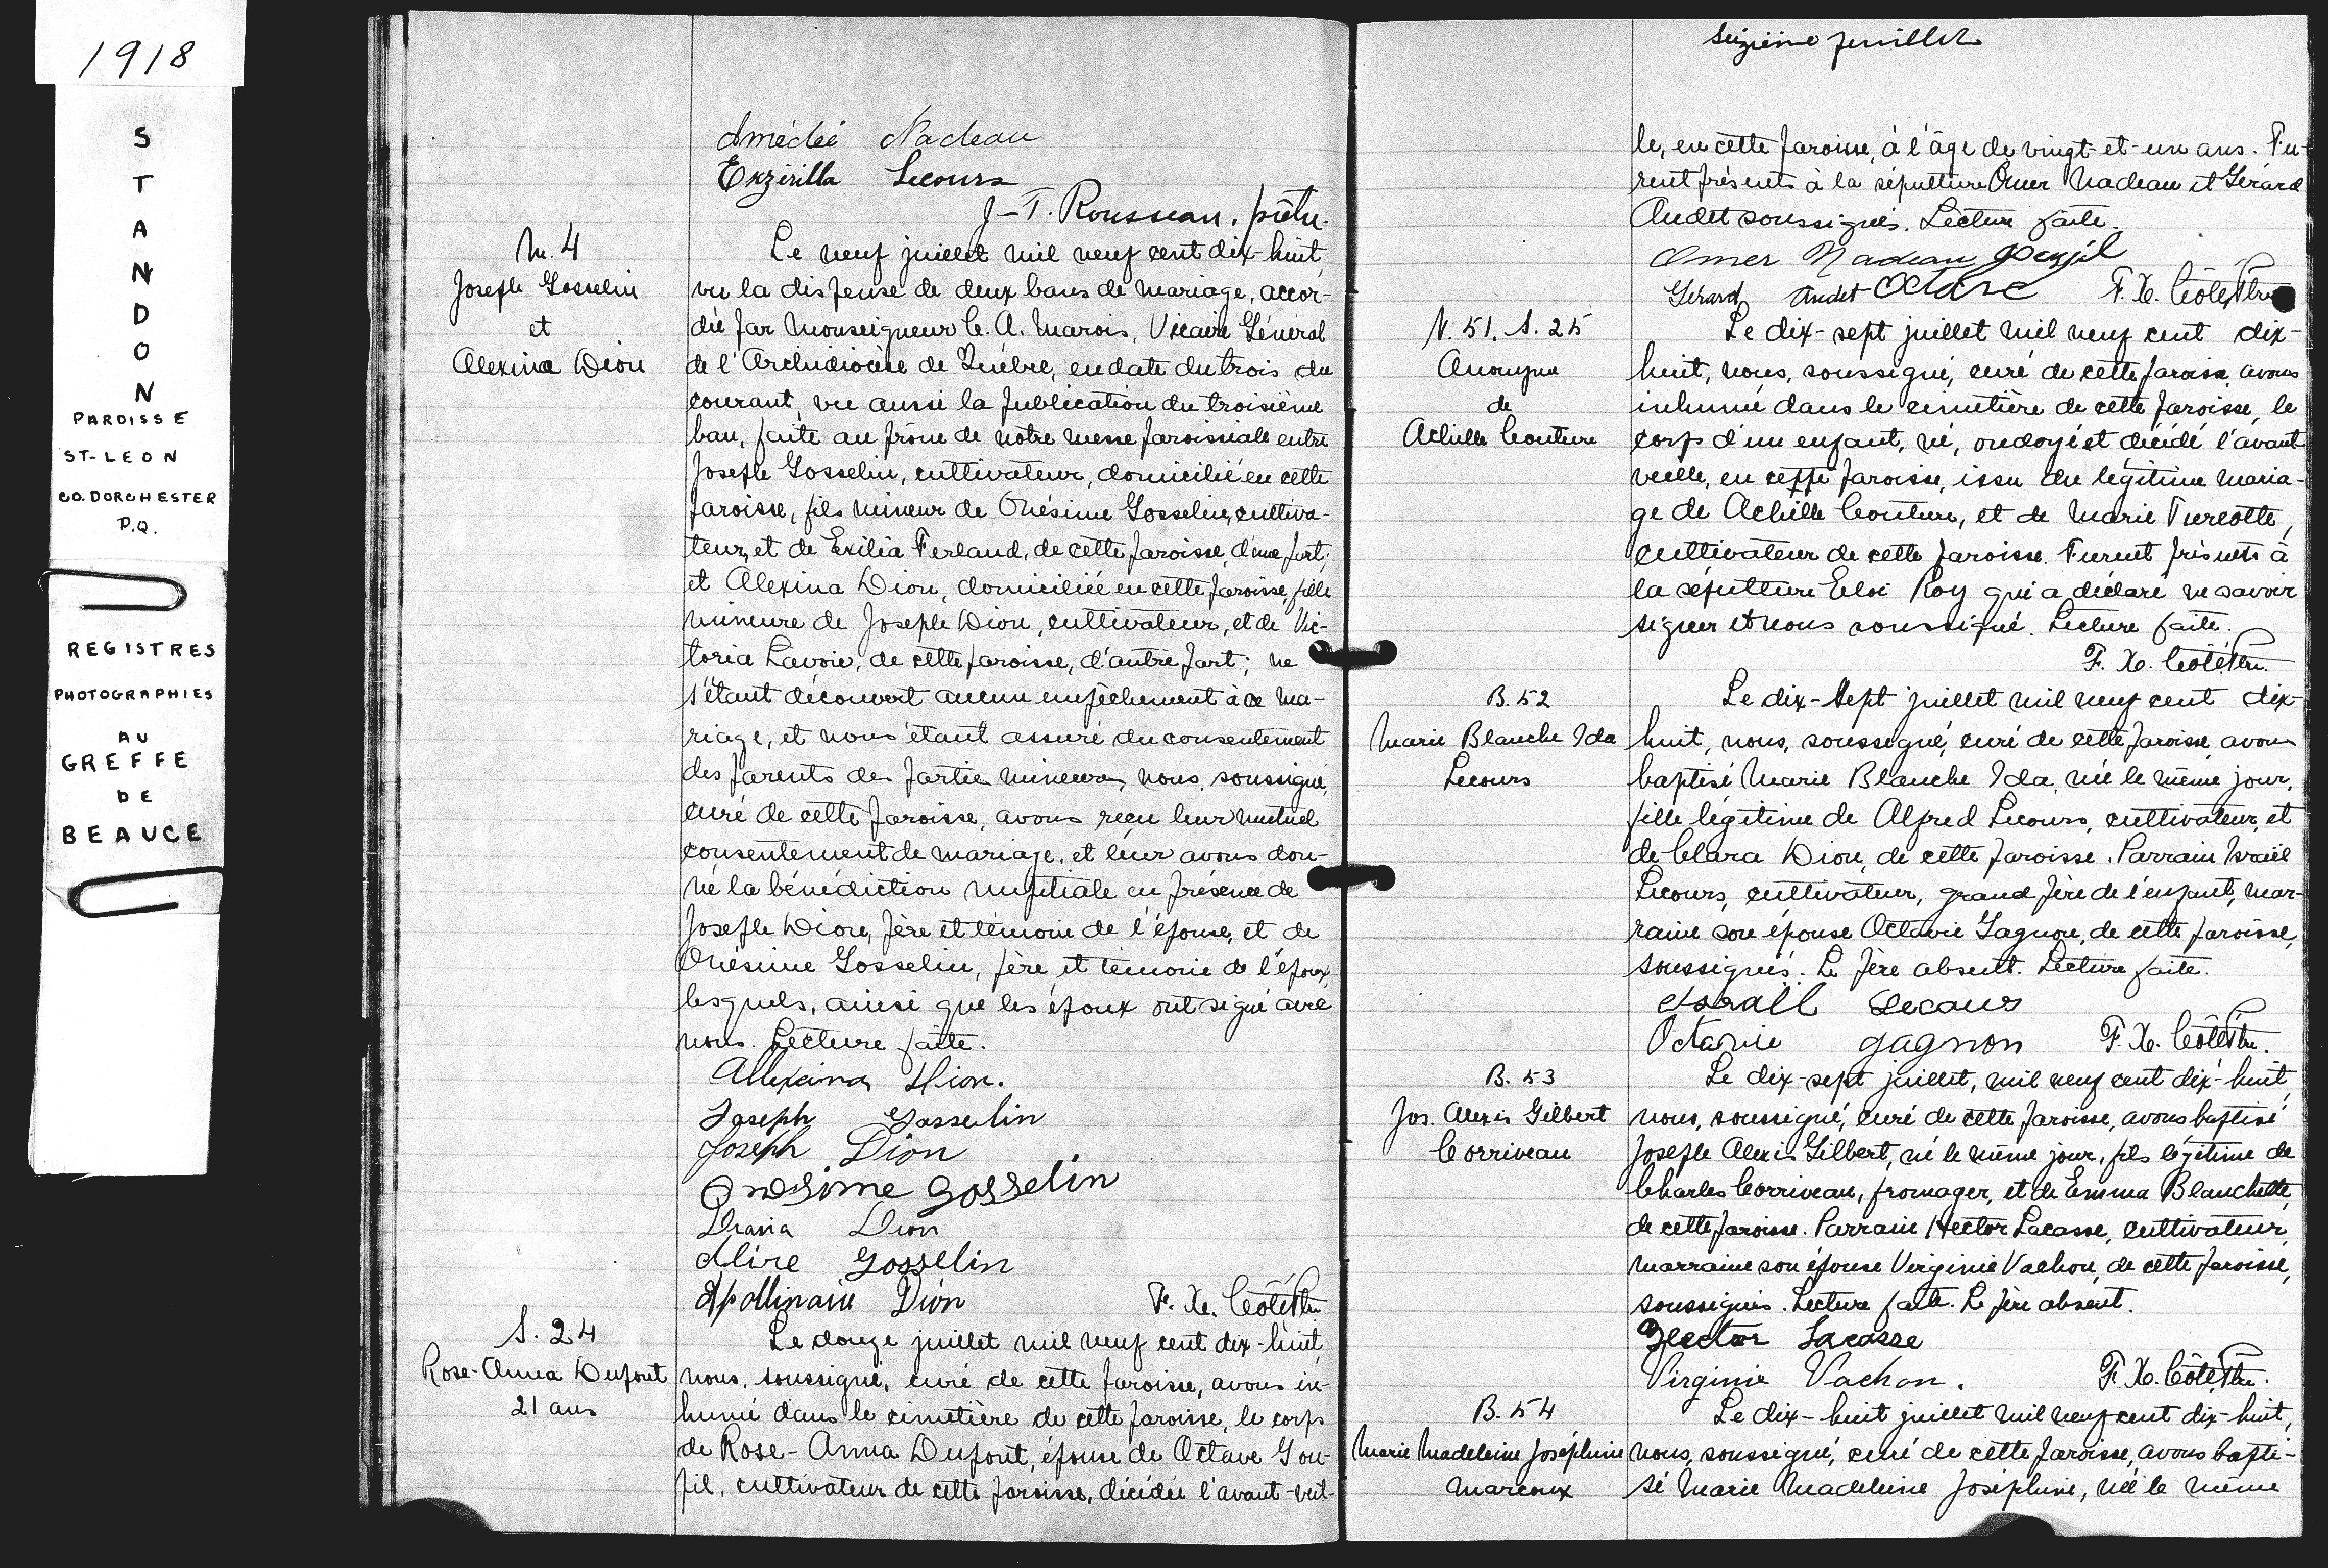 1918
STANDON
PAROISSE
ST-LEON
CO. DORCHESTER
P.Q.
REGISTRES
PHOTOGRAPHIES
AU
GREFFE
DE
BEAUCE
Amédée Nadeau
Exzirilla Lecours
J-T. Rousseau. ptre.
M. 4
Joseph Gosselin
et
Alexina Dion
Le neuf juillet mil neuf cent dix-huit,
vu la dispense de deux bans de mariage, accor-
dée par Monseigneur C. A. Marois, Vicaire Général
de l'Archidiocèse de Québec, en date du trois du
courant, vu aussi la publication du troisième
ban, faite au prône de notre messe paroissiale entre
Joseph Gosselin, cultivateur, domicilié en cette
paroisse, fils mineur de Onésime Gosselin, cultiva-
teur, et de Exilia Ferland, de cette paroisse, d'une part;
et Alexina Dion, domiciliée en cette paroisse, fille
mineure de Joseph Dion, cultivateur, et de Vic-
toria Lavoie, de cette paroisse, d'autre part; ne
s'étant découvert aucun empêchement à ce ma-
riage, et nous étant assuré du consentement
des parents des parties mineures, nous, soussigné,
curé de cette paroisse, avons reçu leur mutuel
consentement de mariage, et leur avons don-
né la bénédiction nuptiale en présence de
Joseph Dion, père et témoin de l'épouse, et de
Onésime Gosselin, père et témoin de l'époux,
lesquels, ainsi que les époux ont signé avec
nous. Lecture faite.
Allexina Dion.
Joseph Gosselin
Joseph Dion
Onésime Gosselin
Diana Dion
Alire Gosselin
Apollinaire Dion F. X. Côté Ptre
S. 24
Rose-Anna Dupont
21 ans
Le douze juillet mil neuf cent dix-huit,
nous, soussigné, curé de cette paroisse, avons in-
humé dans le cimetière de cette paroisse, le corps
de Rose-Anna Dupont, épouse de Octave Gou-
pil, cultivateur de cette paroisse, décédée l'avant-veil-
Seizième feuillet
le, en cette paroisse, à l'âge de vingt-et-un ans. Fu-
rent présents à la sépulture Omer Nadeau et Gérard
Audet soussignés. Lecture faite.
Omer Nadeau Goupil
Gérard Audet Octave F. X. Côté Ptre
N. 51. S. 25
Anonyme
de
Achille Couture
Le dix-sept juillet mil neuf cent dix-
huit, nous, soussigné, curé de cette paroisse, avons
inhumé dans le cimetière de cette paroisse, le
corps d'un enfant, né, ondoyé et décédé l'avant
veille, en cette paroisse, issu du légitime maria-
ge de Achille Couture, et de Marie Turcotte,
cultivateur de cette paroisse. Furent présents à
la sépulture Eloi Roy qui a déclaré ne savoir
signer et nous soussigné. Lecture faite.
F. X. Côté Ptre.
B. 52
Marie Blanche Ida
Lecours
Le dix-sept juillet mil neuf cent dix-
huit, nous, soussigné, curé de cette paroisse avons
baptisé Marie Blanche Ida, née le même jour,
fille légitime de Alfred Lecours, cultivateur, et
de Clara Dion, de cette paroisse. Parrain Israël
Lecours, cultivateur, grand père de l'enfant, mar-
raine son épouse Octavie Gagnon, de cette paroisse,
soussignés. Le père absent. Lecture faite.
Israll Lecours
Octavie gagnon F. X. Côté Ptre.
B. 53
Jos. Alexis Gilbert
Corriveau
Le dix-sept juillet, mil neuf cent dix-huit,
nous, soussigné, curé de cette paroisse, avons baptisé
Joseph Alexis Gilbert, né le même jour, fils légitime de
Charles Corriveau, fromager, et de Emma Blanchette,
de cette paroisse. Parrain Hector Lacasse, cultivateur,
marraine son épouse Virginie Vachon, de cette paroisse,
soussignés. Lecture faite. Le père absent.
Hector Lacasse
Virginie Vachon. F. X. Côté Ptre.
B. 54
Marie Madeleine Joséphine
Marcoux
Le dix-huit juillet mil neuf cent dix-huit,
nous, soussigné, curé de cette paroisse, avons bapti-
sé Marie Madeleine Joséphine, née le même